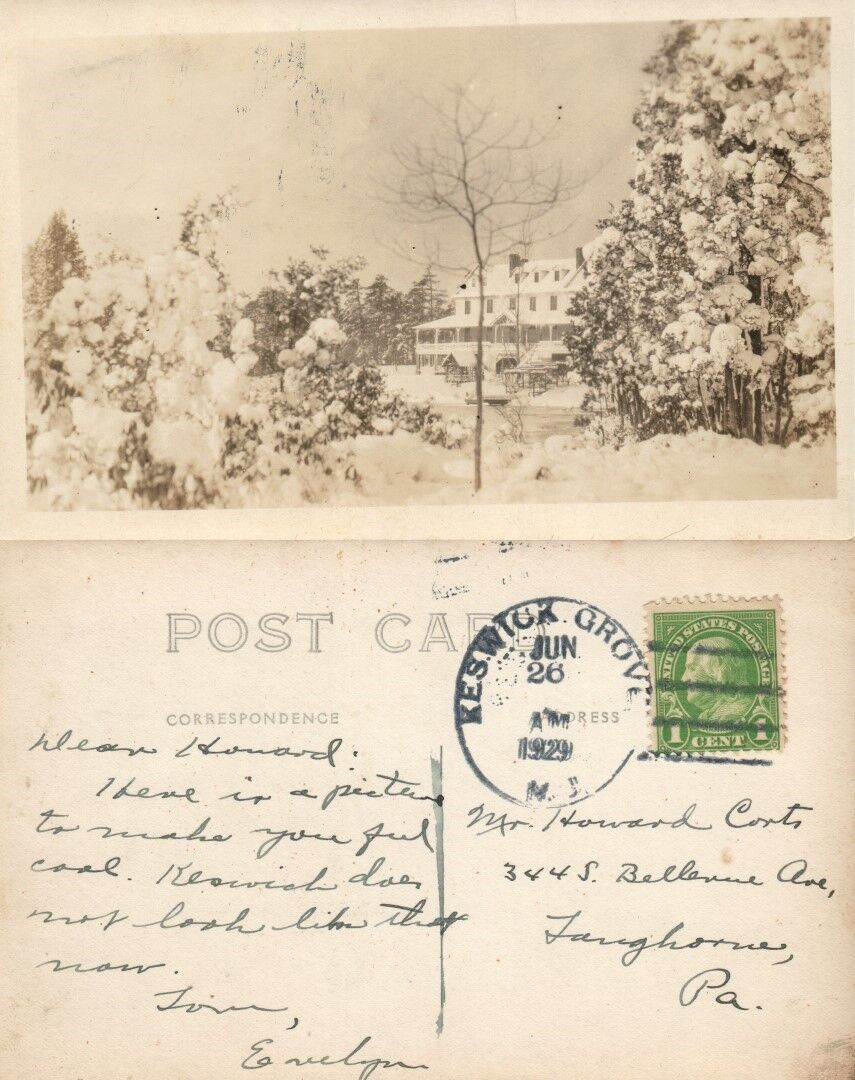 POST CARD
CORRESPONDENCE
ADDRESS
KESWICK GROVE
JUN
26
AM
1929
N.J.
UNITED STATES POSTAGE
1 1
CENT
Dear Howard:
Here is a picture
to make you feel
cool. Keswick does
not look like that
now.
Love,
Evelyn
Mr. Howard Corts
344 S. Bellevue Ave,
Langhorne,
Pa.